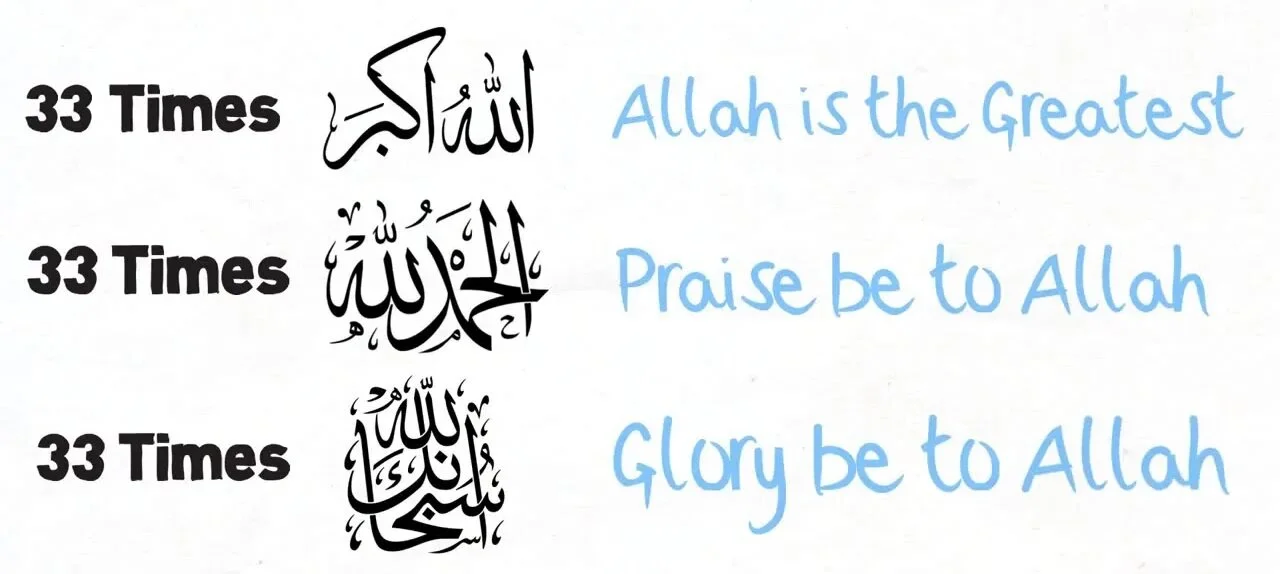 33 Times الله أكبر Allah is the Greatest
33 Times الحمد لله Praise be to Allah
33 Times Glory be to Allah